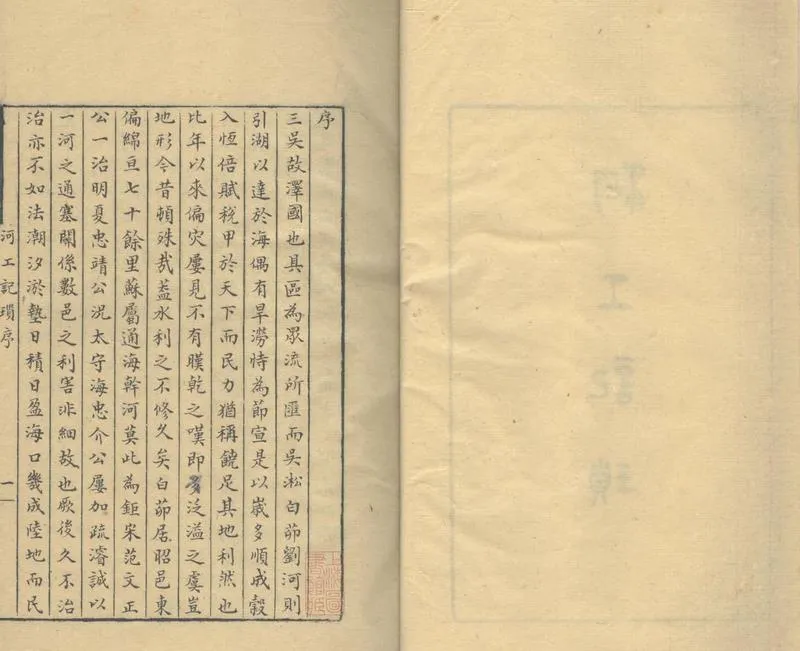 河工記瑣
序
三吳故澤國也具區為眾流所匯而吳淞白茆劉河則
引湖以達於海偶有旱澇恃為節宣是以歲多順成穀
入恆倍賦稅甲於天下而民力猶稱饒足其地利然也
比年以來偏灾屢見不有暵乾之嘆即多泛溢之虞豈
地形今昔頓殊哉葢水利之不修久矣白茆居昭邑東
偏綿亘七十餘里蘇屬通海幹河莫此為鉅宋范文正
公一治明夏忠靖公況太守海忠介公屢加疏濬誠以
一河之通塞關係數邑之利害非細故也厥後久不治
治亦不如法潮汐淤墊日積日盈海口幾成陸地而民
河工記瑣序
一
上海圖書館藏